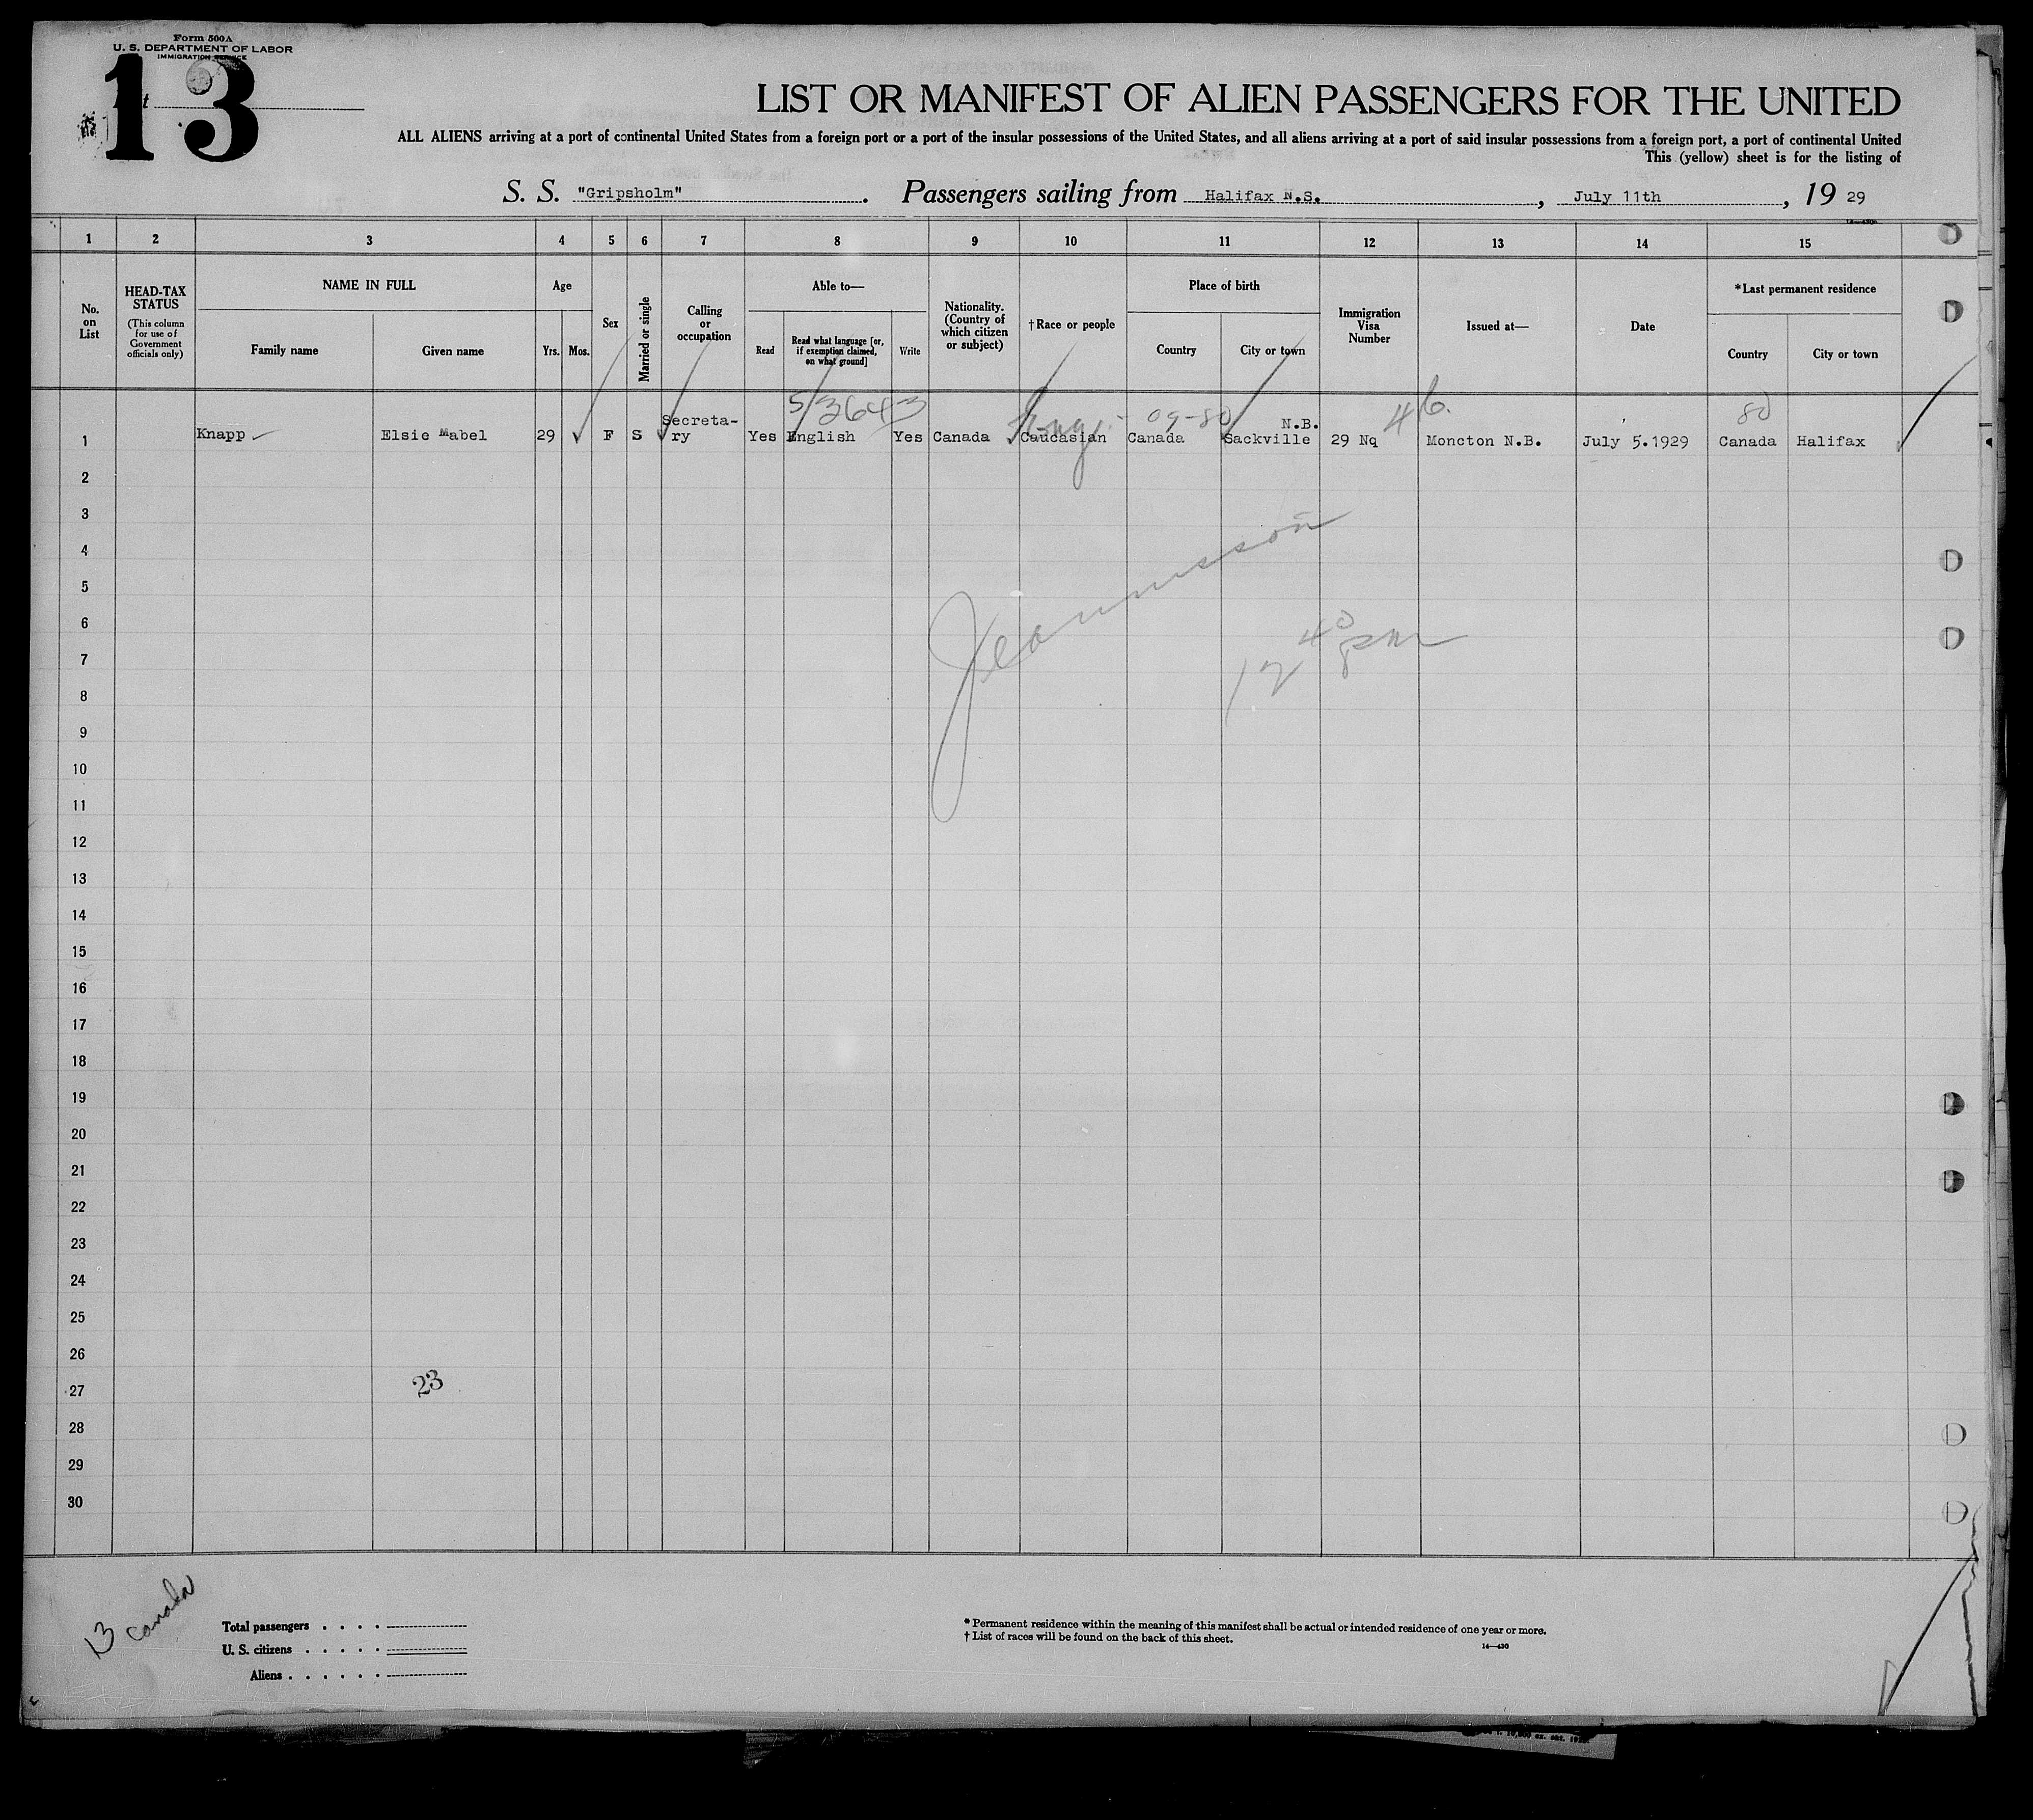 Form 500A
U. S. DEPARTMENT OF LABOR
IMMIGRATION SERVICE
13
LIST OR MANIFEST OF ALIEN PASSENGERS FOR THE UNITED
ALL ALIENS arriving at a port of continental United States from a foreign port or a port of the insular possessions of the United States, and all aliens arriving at a port of said insular possessions from a foreign port, a port of continental United
This (yellow) sheet is for the listing of
S. S. "Gripsholm". Passengers sailing from Halifax N.S., July 11th, 19 29
1 2 3 4 5 6 7 8 9 10 11 12 13 14 15
No. on List
HEAD-TAX STATUS
(This column for use of Government officials only)
NAME IN FULL
Family name Given name
Age
Yrs. Mos.
Sex
Married or single
Calling or occupation
Able to—
Read
Read what language [or, if exemption claimed, on what ground]
Write
Nationality. (Country of which citizen or subject)
†Race or people
Place of birth
Country City or town
Immigration Visa Number
Issued at—
Date
*Last permanent residence
Country City or town
5/3643 09-80 46. 80
1 Knapp Elsie Mabel 29 F S Secreta-ry Yes English Yes Canada Caucasian Canada Sackville N.B. 29 Nq Moncton N.B. July 5.1929 Canada Halifax
2
3
4
5
6
7
8
9
10
11
12
13
14
15
16
17
18
19
20
21
22
23
24
25
26
27
28
29
30
12 40 pm
23
13 Canada
Total passengers . . . .
U. S. citizens . . . . .
Aliens . . . . . .
* Permanent residence within the meaning of this manifest shall be actual or intended residence of one year or more.
† List of races will be found on the back of this sheet.
14—430